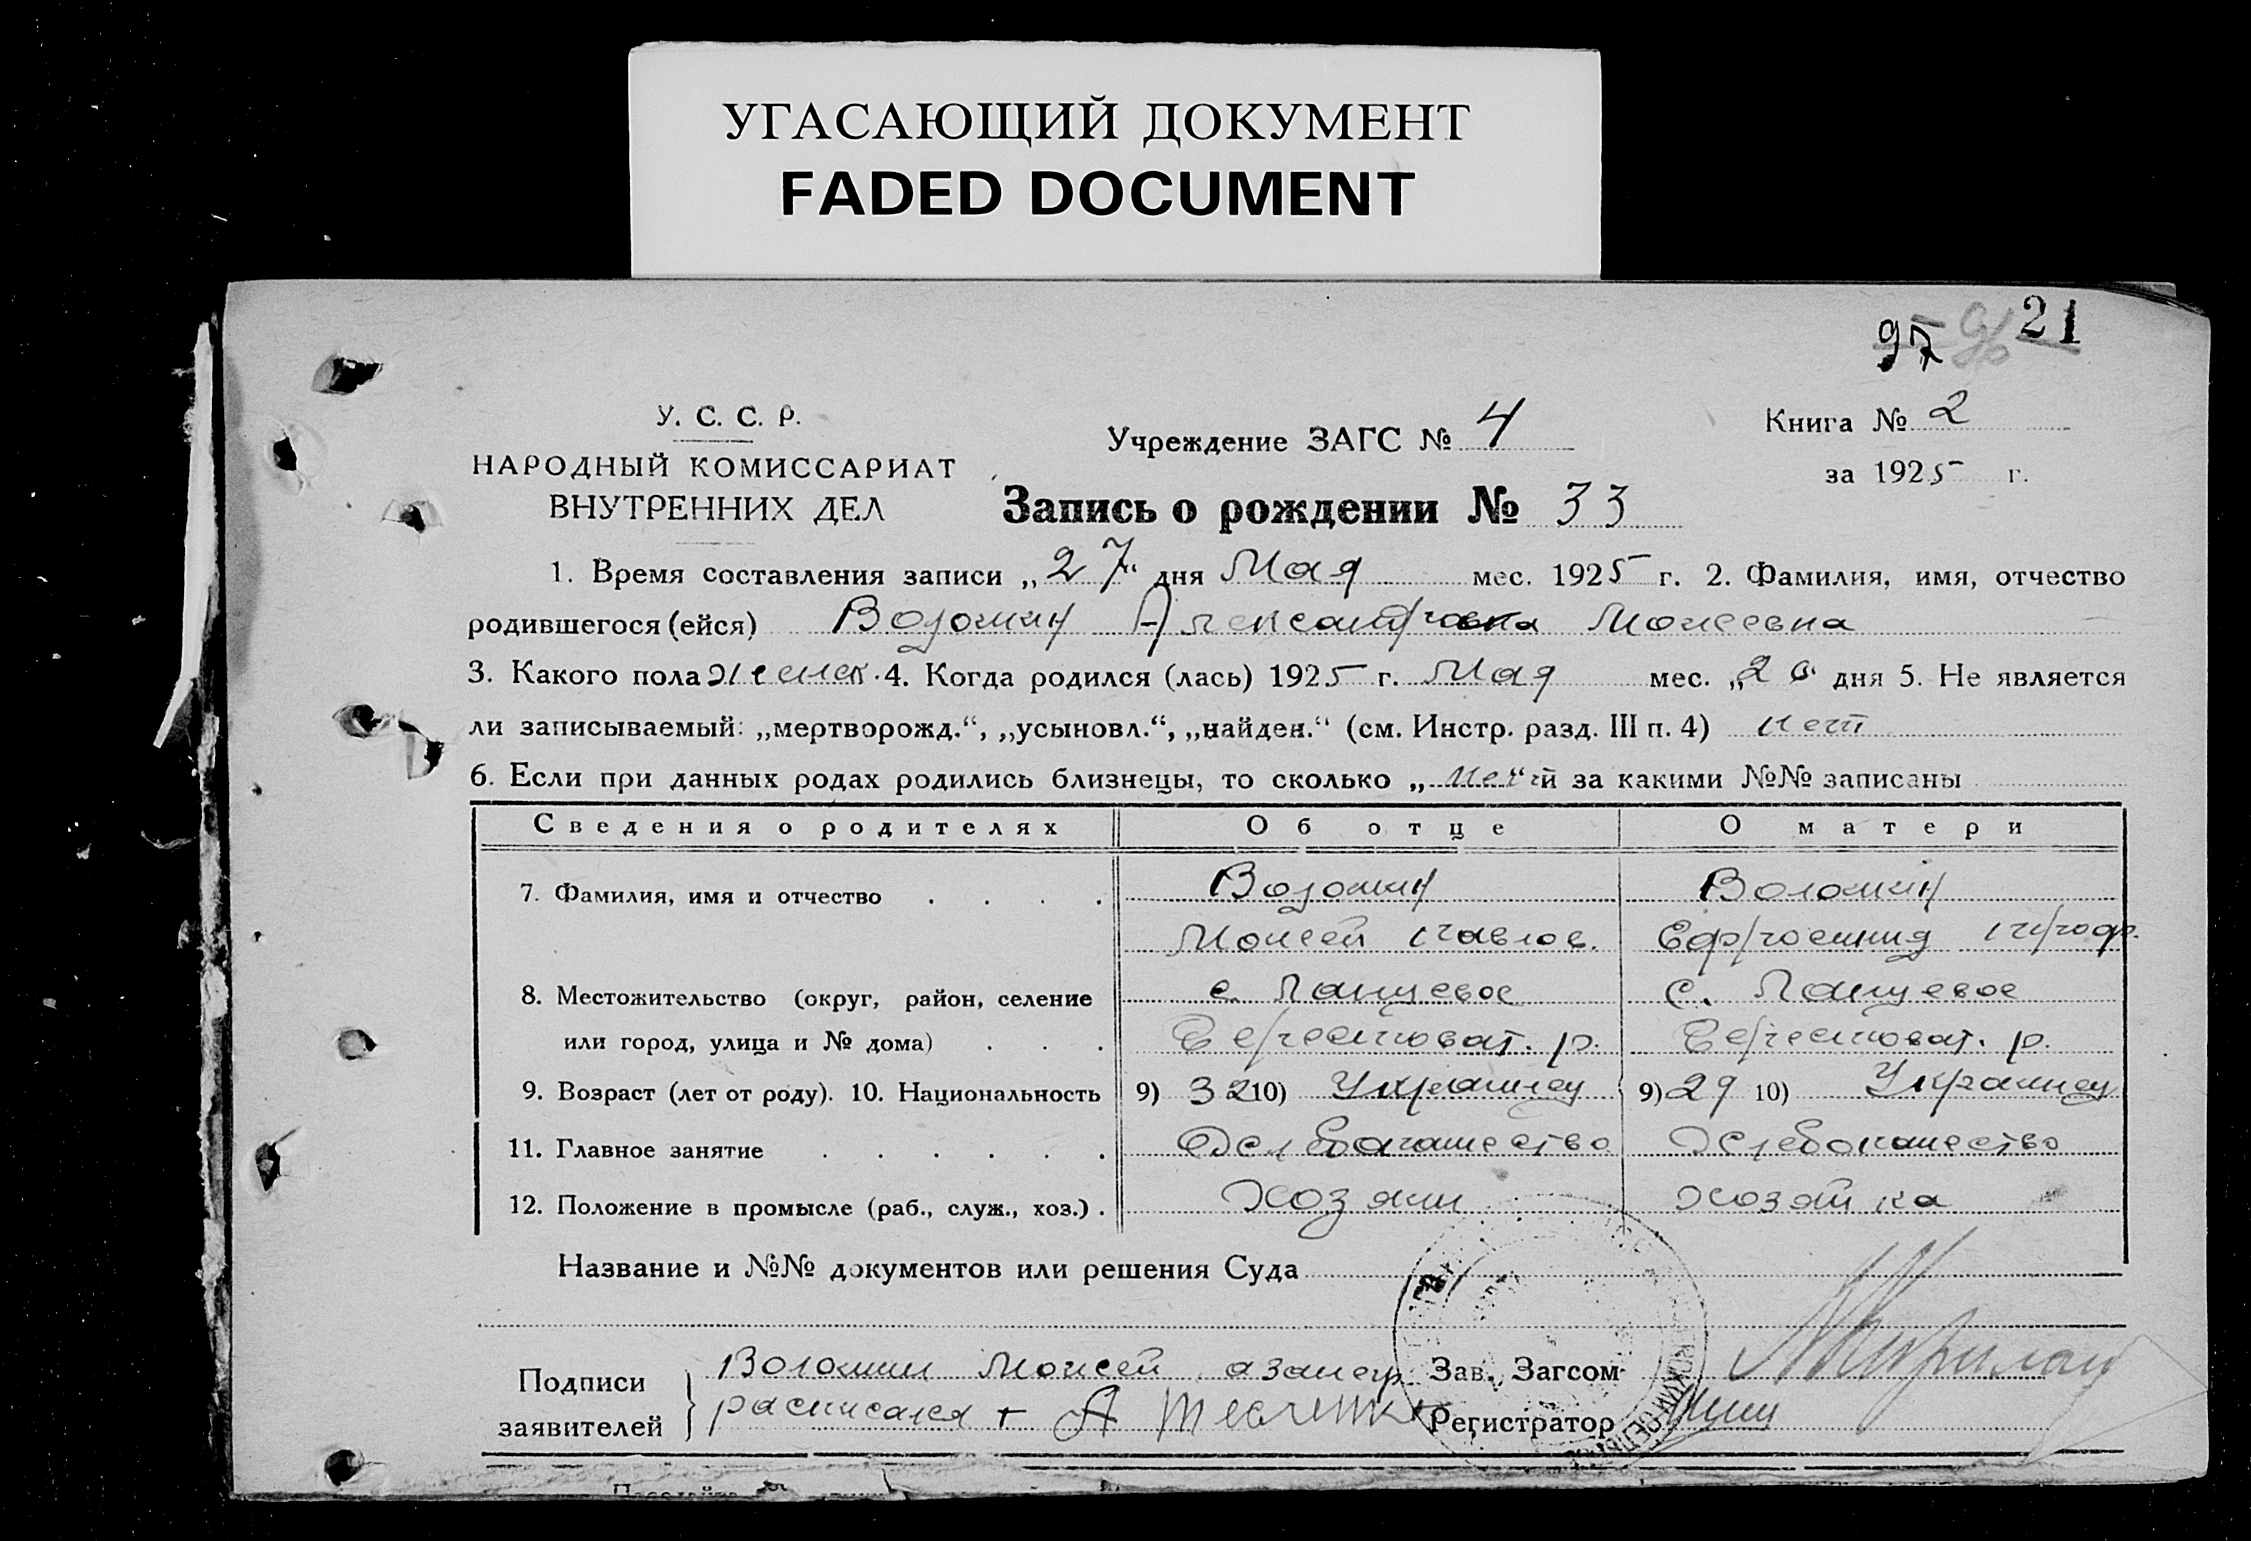 УГАСАЮЩИЙ ДОКУМЕНТ
FADED DOCUMENT
21
У. С. С. Р.
НАРОДНЫЙ КОМИССАРИАТ
ВНУТРЕННИХ ДЕЛ
Учреждение ЗАГС № 4
Книга № 2
за 1925 г.
Запись о рождении № 33
1. Время составления записи „27“ дня Мая мес. 1925 г. 2. Фамилия, имя, отчество
родившегося (ейся) Александровна Моисеевна
3. Какого пола женск. 4. Когда родился (лась) 1925 г. Мая мес. „20“ дня 5. Не является
ли записываемый: „мертворожд.“, „усыновл.“, „найден.“ (см. Инстр. разд. III п. 4) нет
6. Если при данных родах родились близнецы, то сколько „нет“ й за какими №№ записаны
Сведения о родителях Об отце О матери
7. Фамилия, имя и отчество Волошин
Моисей Павлов. Ефросиния
8. Местожительство (округ, район, селение с. Ланцевое с. Ланцевое
или город, улица и № дома) р. р.
9. Возраст (лет от роду). 10. Национальность 9) 32 10) Украинец 9) 29 10) Украинец
11. Главное занятие Хлебопашество Хлебопашество
12. Положение в промысле (раб., служ., хоз.) Хозяин хозяйка
Название и №№ документов или решения Суда
Подписи заявителей Волошин Моисей а за него Зав. Загсом
расписался + А Регистратор